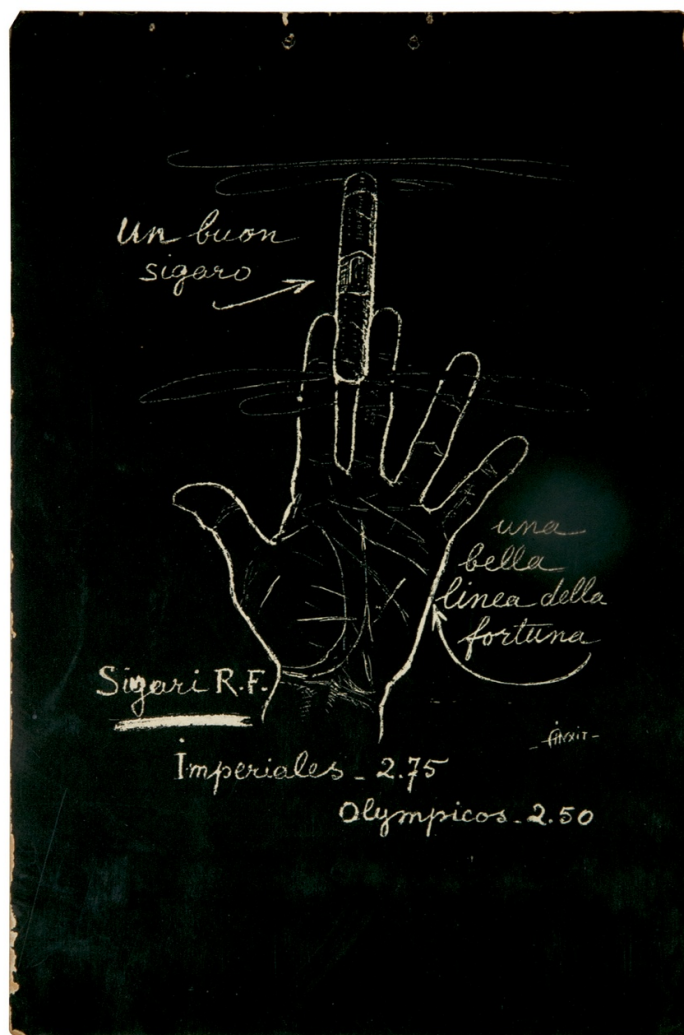 Un buon
sigaro
una
bella
linea della
fortuna
Sigari R.F.
Imperiales - 2.75
Olympicos - 2.50